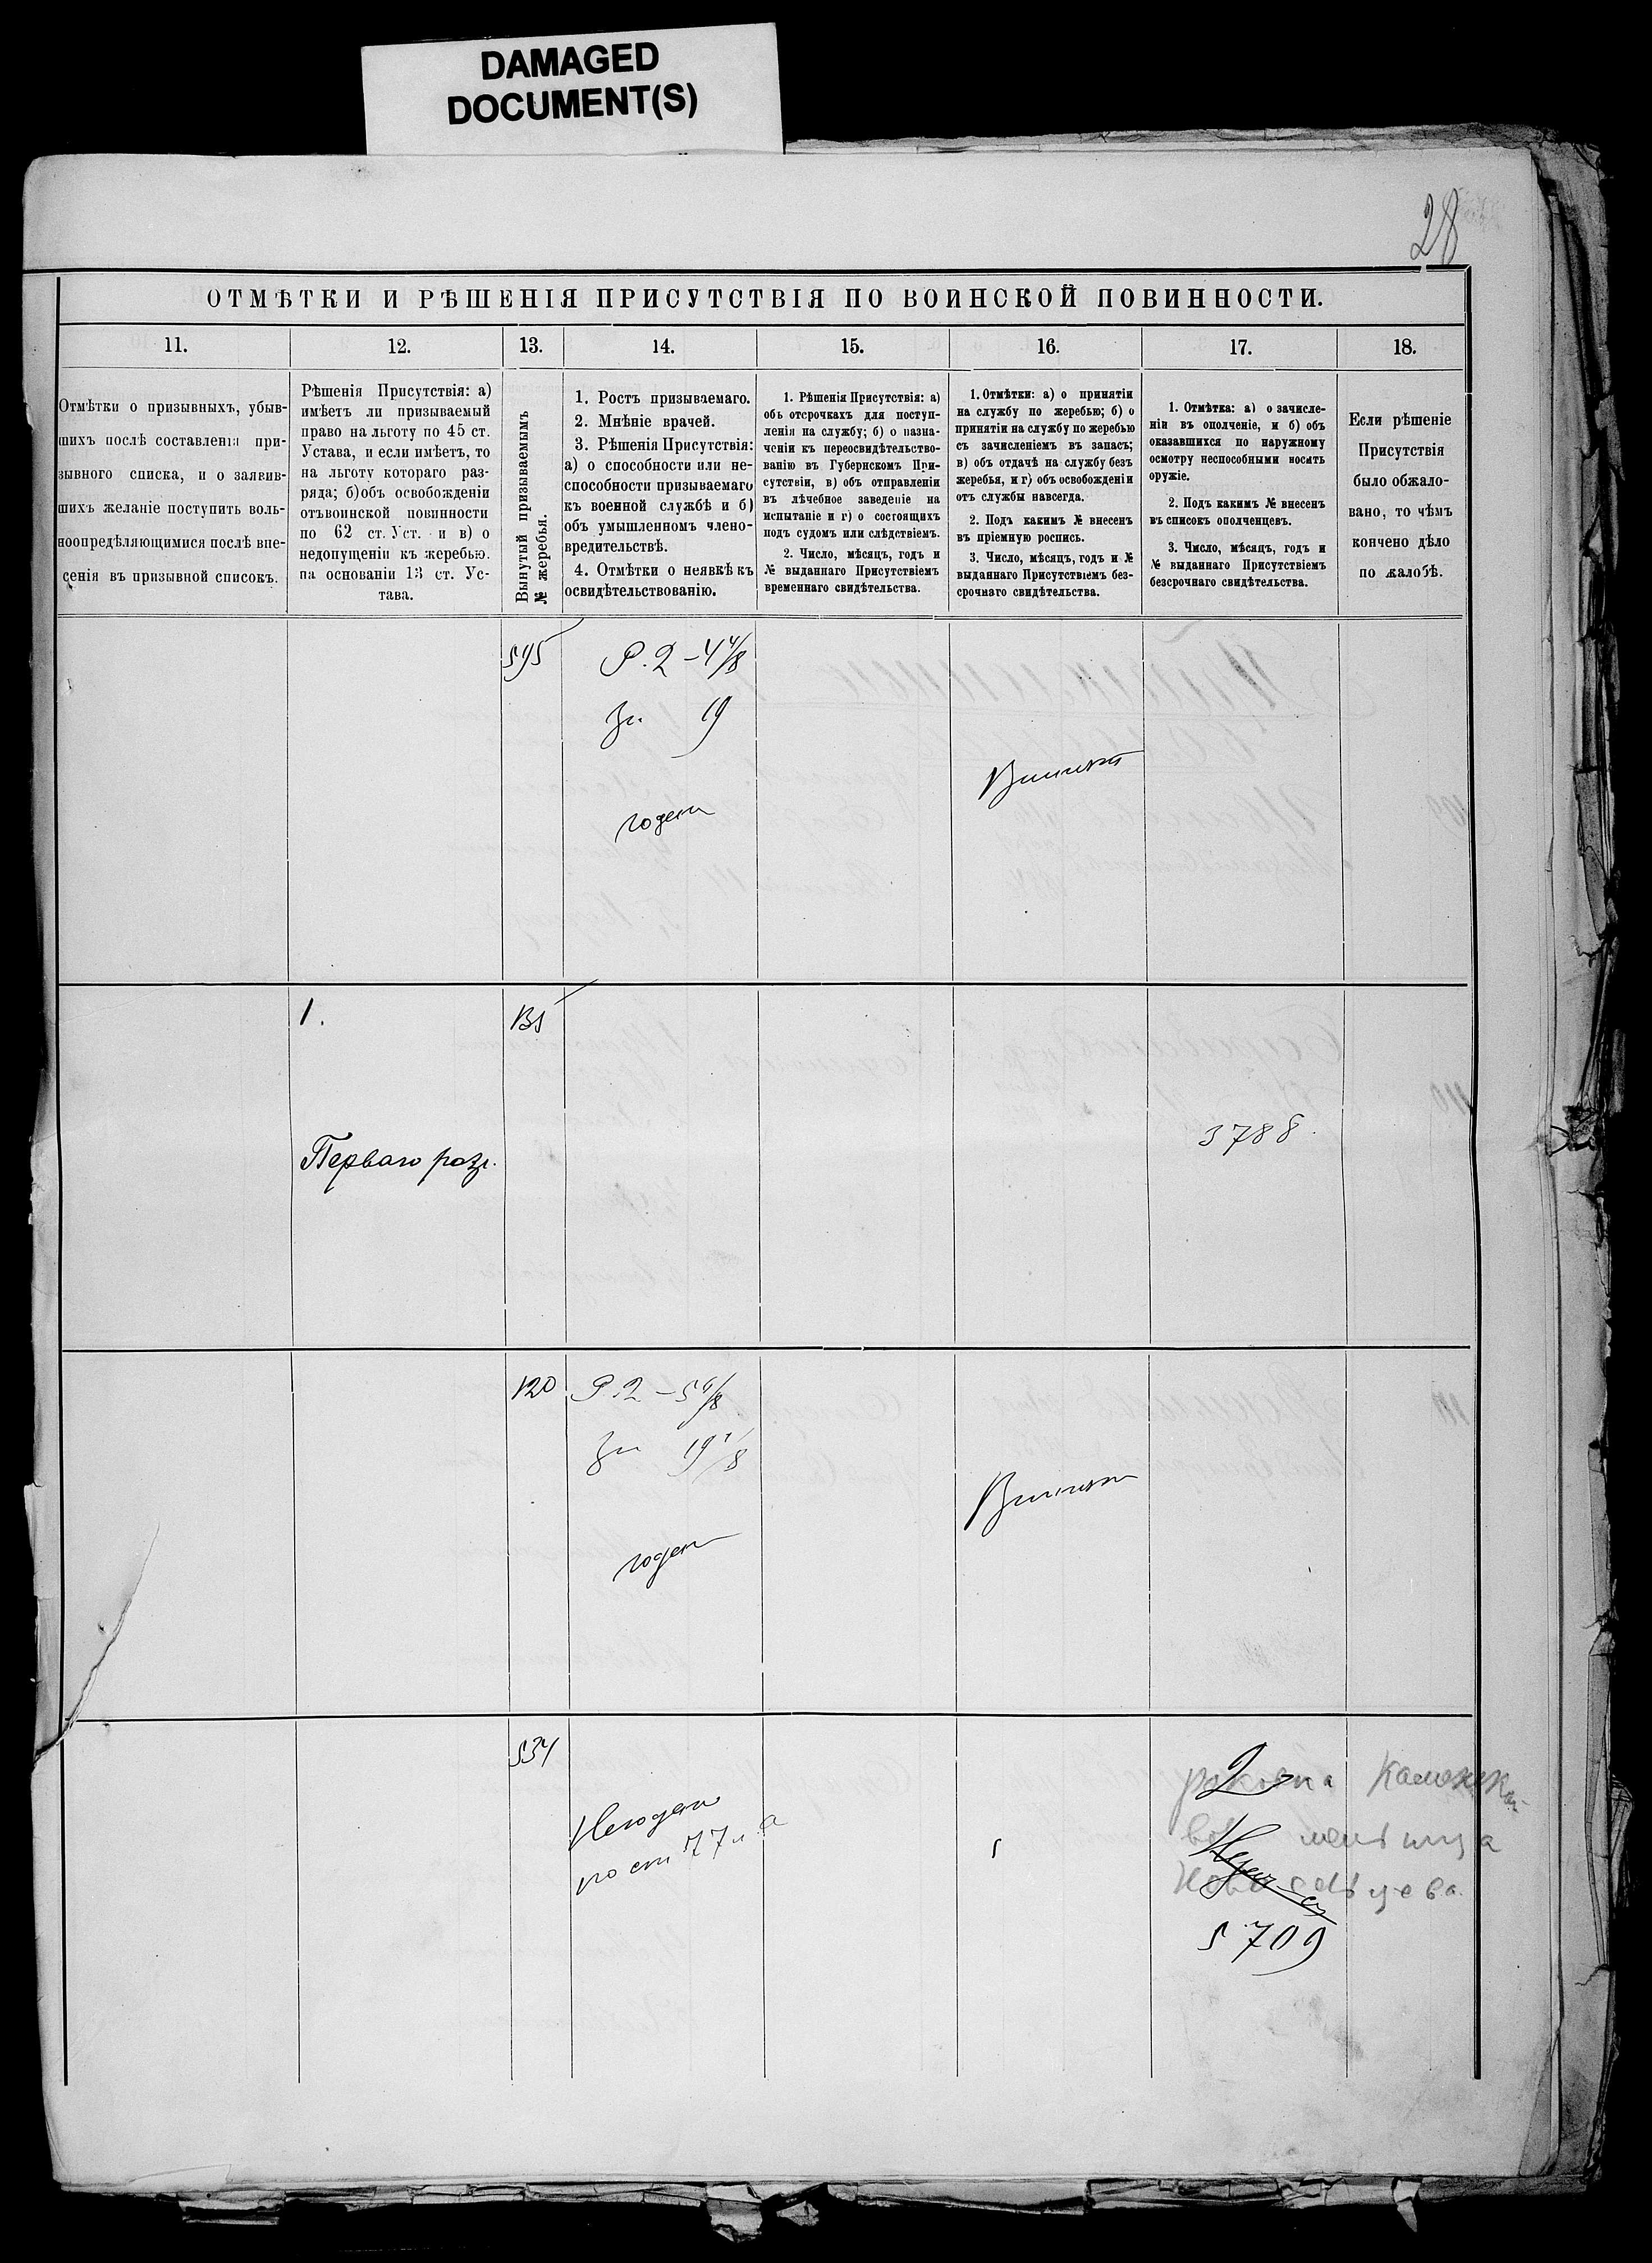 DAMAGED
DOCUMENT(S)
28
ОТМѢТКИ И РѢШЕНІЯ ПРИСУТСТВІЯ ПО ВОИНСКОЙ ПОВИННОСТИ.
11.
12.
13.
14.
15.
16.
17.
18.
Отмѣтки о призывныхъ, убыв-
шихъ послѣ составленія при-
зывного списка, и о заявив-
шихъ желаніе поступить воль-
ноопредѣляющимися послѣ вне-
сенія въ призывной списокъ.
Рѣшенія Присутствія: а)
имѣетъ ли призываемый
право на льготу по 45 ст.
Устава, и если имѣетъ, то
на льготу котораго раз-
ряда; б) объ освобожденіи
отъ воинской повинности
по 62 ст. Уст. и в) о
недопущеніи къ жеребью.
на основаніи 13 ст. Ус-
тава.
Вынутый призываемымъ
№ жеребья.
1. Ростъ призываемаго.
2. Мнѣніе врачей.
3. Рѣшенія Присутствія:
а) о способности или не-
способности призываемаго
къ военной службѣ и б)
объ умышленномъ члено-
вредительствѣ.
4. Отмѣтки о неявкѣ къ
освидѣтельствованію.
1. Рѣшенія Присутствія: а)
объ отсрочкахъ для поступ-
ленія на службу; б) о назна-
ченіи къ переосвидѣтельство-
ванію въ Губернскомъ При-
сутствіи, в) объ отправленіи
въ лѣчебное заведеніе на
испытаніе и г) о состоящихъ
подъ судомъ или слѣдствіемъ.
2. Число, мѣсяцъ, годъ и
№ выданнаго Присутствіемъ
временнаго свидѣтельства.
1. Отмѣтки: а) о принятіи
на службу по жеребью; б) о
принятіи на службу по жеребью
съ зачисленіемъ въ запасъ;
в) объ отдачѣ на службу безъ
жеребья, и г) объ освобожденіи
отъ службы навсегда.
2. Подъ какимъ № внесенъ
въ пріемную роспись.
3. Число, мѣсяцъ, годъ и №
выданнаго Присутствіемъ без-
срочнаго свидѣтельства.
1. Отмѣтка: а) о зачисле-
ніи въ ополченіе, и б) объ
оказавшихся по наружному
осмотру неспособными носить
оружіе.
2. Подъ какимъ № внесенъ
въ списокъ ополченцевъ.
3. Число, мѣсяцъ, годъ и
№ выданнаго Присутствіемъ
безсрочнаго свидѣтельства.
Если рѣшеніе
Присутствія
было обжало-
вано, то чѣмъ
кончено дѣло
по жалобѣ.
595
Р. 2 – 4 4/8
19
годенъ
1.
Перваго разр.
3788.
120
Р. 2 – 5 6/8
19 1/8
годенъ
534
Негоденъ
по ст 77 л а
2
5709